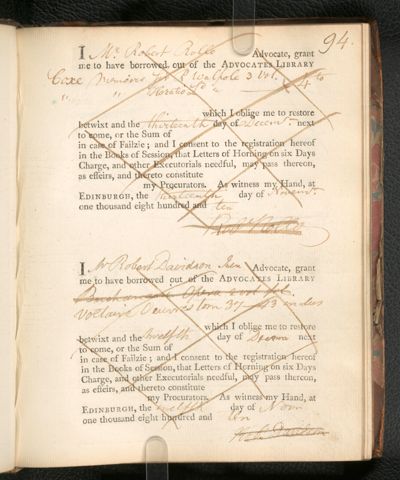 94.
I Mr Robert Rolle Advocate, grant
me to have borrowed out of the ADVOCATES LIBRARY
Coxe Memoires Walpole 3 Vol. 4to
which I oblige me to restore
betwixt and the thirteenth day of Decemr. next
to come, or the Sum of
in case of Failzie; and I consent to the registration hereof
in the Books of Session, that Letters of Horning on six Days
Charge, and other Executorials needful, may pass thereon,
as effeirs, and thereto constitute
my Procurators. As witness my Hand, at
EDINBURGH, the thirteenth day of Novemr.
one thousand eight hundred and ten
I Mr Robert Davidson Advocate, grant
me to have borrowed out of the ADVOCATES LIBRARY
Buchanani Opera
Voltaire Oeuvres tom 37
which I oblige me to restore
betwixt and the twelfth day of Decem next
to come, or the Sum of
in case of Failzie; and I consent to the registration hereof
in the Books of Session, that Letters of Horning on six Days
Charge, and other Executorials needful, may pass thereon,
as effeirs, and thereto constitute
my Procurators. As witness my Hand, at
EDINBURGH, the twelfth day of Novr
one thousand eight hundred and ten